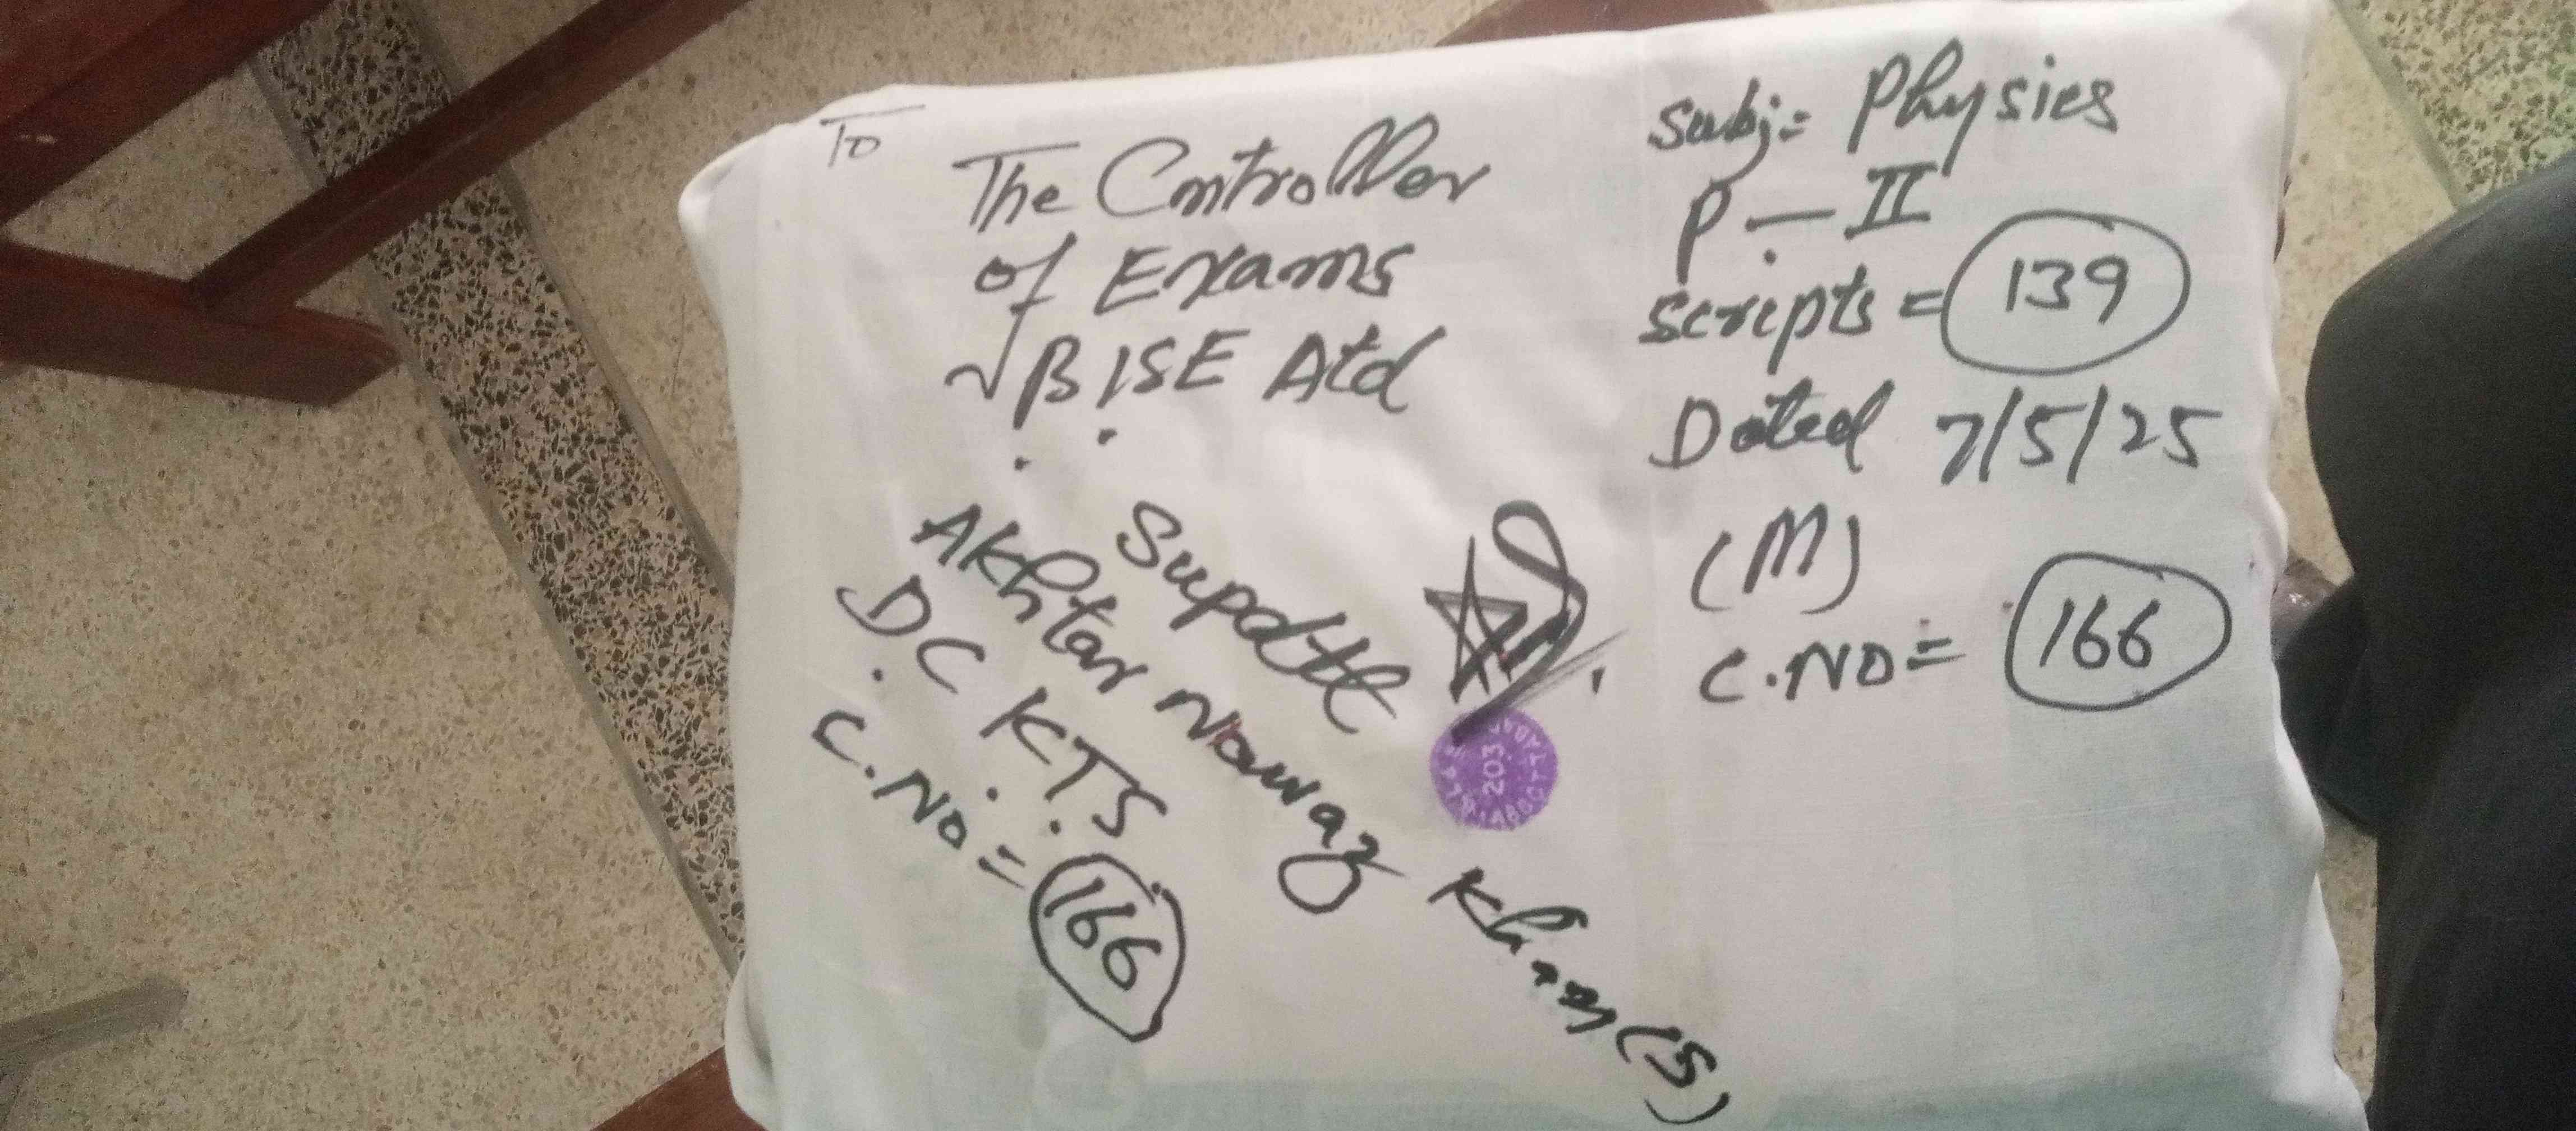 To
The Controller
of Exams
BISE Atd
Subj:= Physics
P - II
Scripts = 139
Dated 7/5/25
(M)
C.NO = 166
Supdtt
Akhtar Nawaz Khan (S)
D.C K.T.S
C.No = 166
203